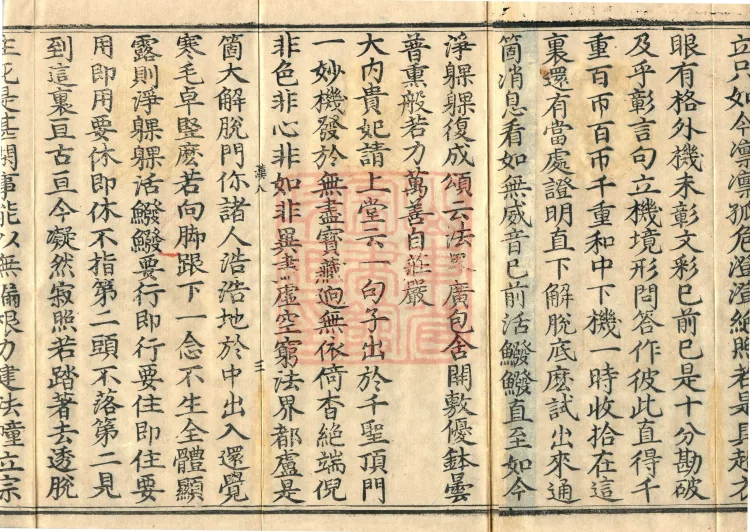 立只如今凜凜孤危澄澄絕照若是具超
眼有格外機未彰文彩已前已是十分勘破
及乎彰言句立機境形問答作彼此直得千
重百帀百帀千重和中下機一時收拾在這
裏還有當處證明直下解脫底麽試出來通
箇消息看如無威音已前活鱍鱍直至如今
淨躶躶復成頌云法界廣包含開敷優鉢曇
普熏般若力萬善自莊嚴
大內貴妃請上堂云一句子出於千聖頂門
一妙機發於無盡寶藏迥無依倚杳絕端倪
非色非心非如非異盡虛空窮法界都盧是
漢八
三
箇大解脫門你諸人浩浩地於中出入還覺
寒毛卓竪麽若向脚跟下一念不生全體顯
露則淨躶躶活鱍鱍要行即行要住即住要
用即用要休即休不指第二頭不落第二見
到這裏亘古亘今凝然寂照若踏著去透脫
生死是甚閑事能以無偏眼力建法幢立宗